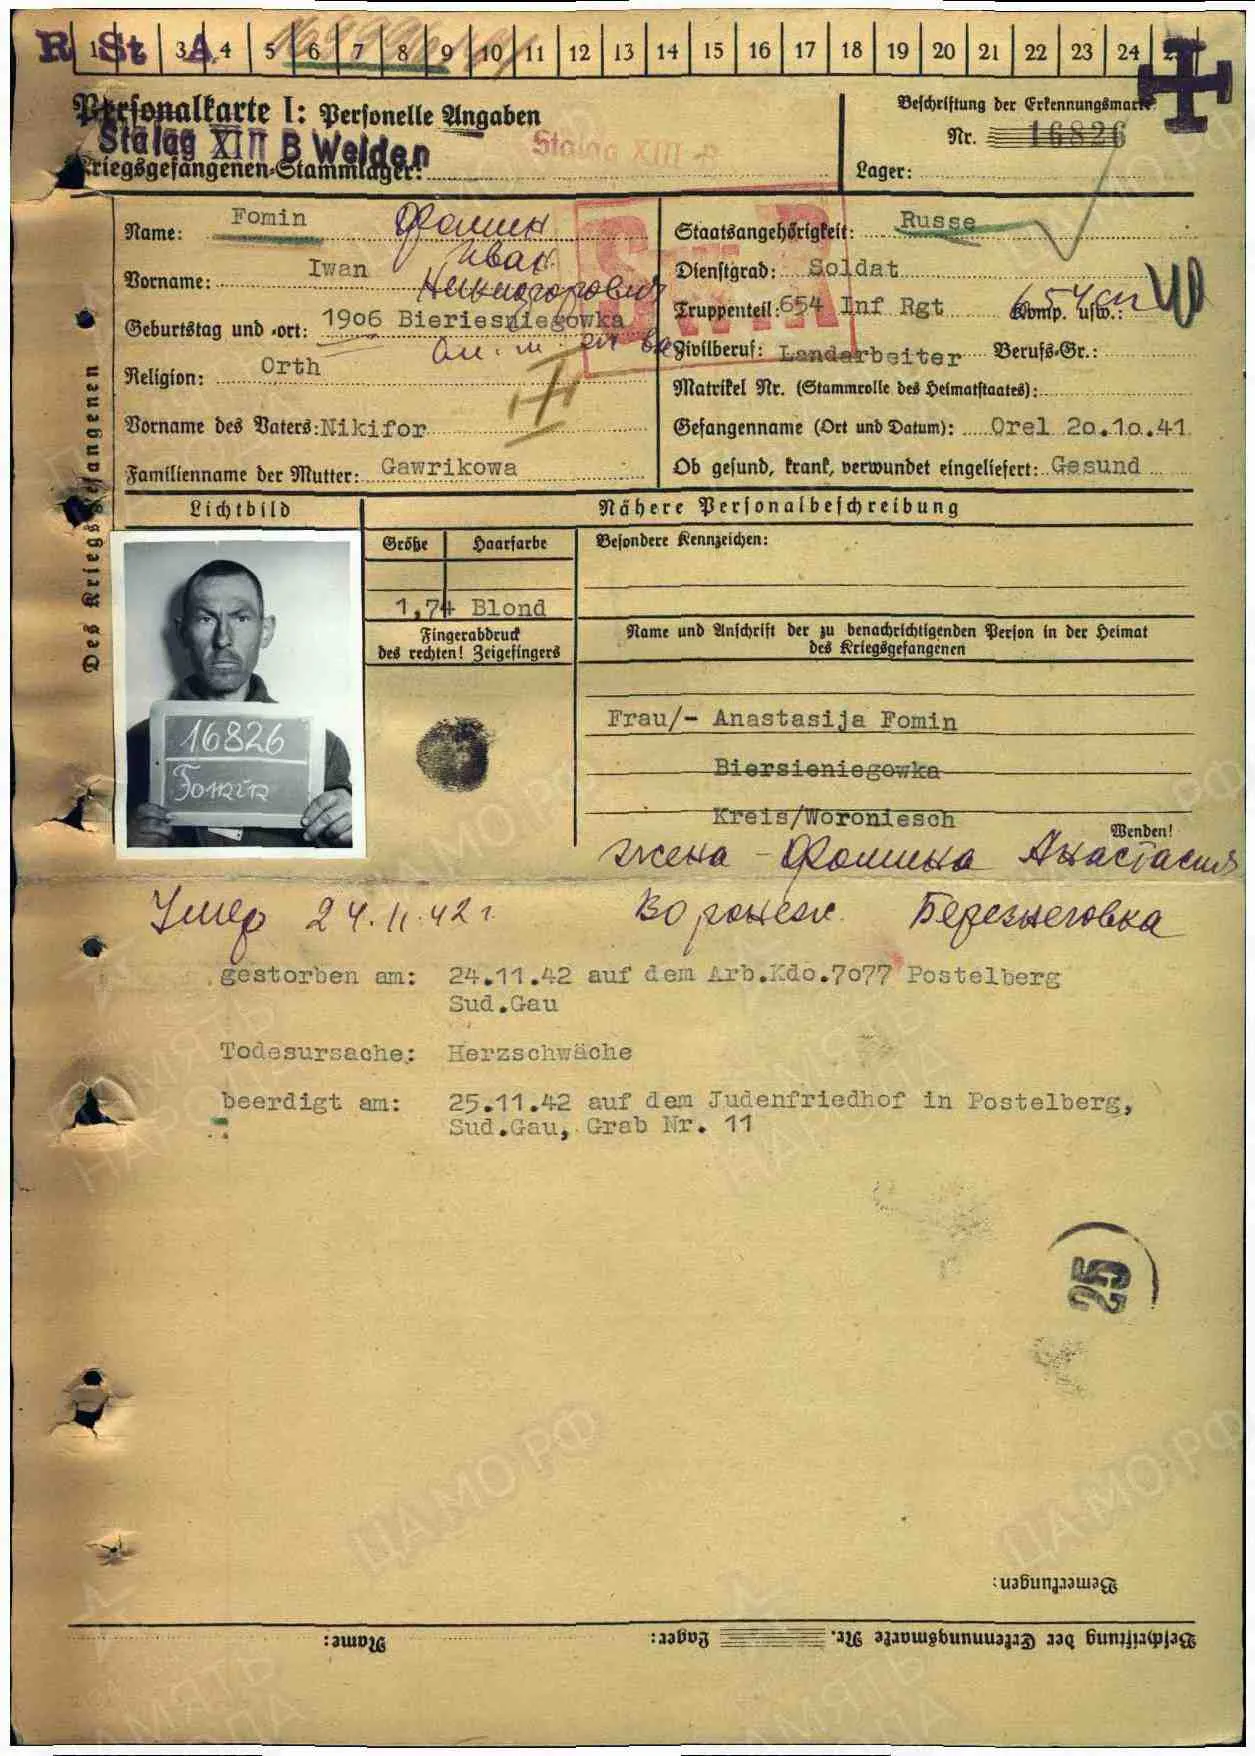 R St A
1 3 4 5 6 7 8 9 10 11 12 13 14 15 16 17 18 19 20 21 22 23 24 25
Personalkarte I: Personelle Angaben
Stalag XIII B Weiden
Stalag XIII B
Kriegsgefangenen-Stammlager:
Beschriftung der Erkennungsmarke
Nr. 16826
Lager:
Des Kriegsgefangenen
Name: Fomin Фомин
Vorname: Iwan Иван
Никифорович
Geburtstag und -ort: 1906 Bieriesniegowka
Religion: Orth
Vorname des Vaters: Nikifor
Familienname der Mutter: Gawrikowa
Staatsangehörigkeit: Russe
Dienstgrad: Soldat
Truppenteil: 654 Inf Rgt Komp. usw.: 654 сп
Zivilberuf: Landarbeiter Berufs-Gr.:
Matrikel Nr. (Stammrolle des Heimatstaates):
Gefangenname (Ort und Datum): Orel 20.10.41
Ob gesund, krank, verwundet eingeliefert: Gesund
Lichtbild
Nähere Personalbeschreibung
Größe Haarfarbe
1,74 Blond
Besondere Kennzeichen:
Fingerabdruck
des rechten! Zeigefingers
16826
Fomin
Name und Anschrift der zu benachrichtigenden Person in der Heimat
des Kriegsgefangenen
Frau/- Anastasija Fomin
Biersieniegowka
Kreis/Woroniesch
Wenden!
жена - Фомина Анастасия
Умер 24.11.42 г. Воронеж. Березнеговка
gestorben am: 24.11.42 auf dem Arb.Kdo.7077 Postelberg
Sud.Gau
Todesursache: Herzschwäche
beerdigt am: 25.11.42 auf dem Judenfriedhof in Postelberg,
Sud.Gau, Grab Nr. 11
25
Bemerkungen:
Name: Lager: Beschriftung der Erkennungsmarke Nr.
ПАМЯТЬ НАРОДА
ЦАМО РФ